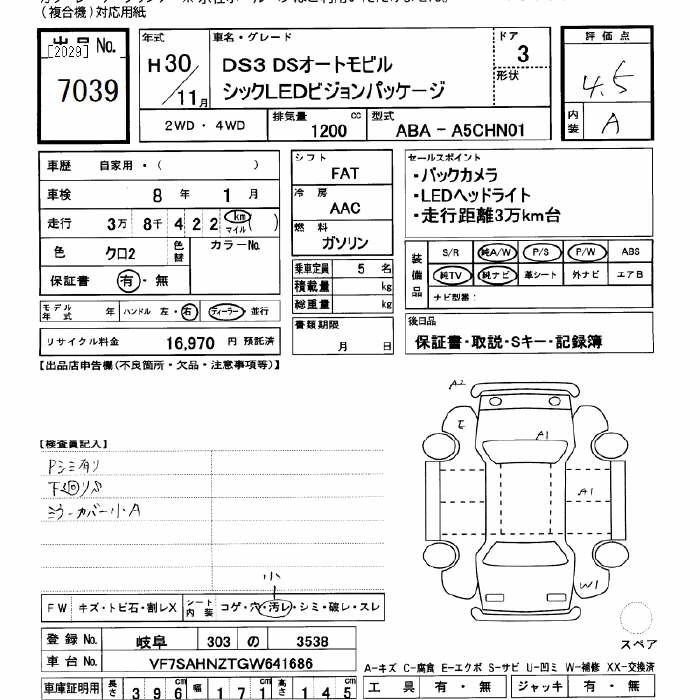 (複合機)対応用紙
出品 No.
[2029]
7039
年式
H30/11月
車名・グレード
DS3 DSオートモビル
シックLEDビジョンパッケージ
ドア
3
形状
評価点
4.5
内装
A
2WD・4WD
排気量
1200 cc
型式
ABA - A5CHN01
車歴 自家用・( )
車検 8年 1月
走行 3万 8千 4 2 2 km マイル ( )
色 クロ2 色替 カラーNo.
保証書 有・無
モデル年式 年 ハンドル 左・右 ディーラー・並行
リサイクル料金 16,970 円 預託済
シフト
FAT
冷房
AAC
燃料
ガソリン
乗車定員 5 名
積載量 kg
総重量 kg
書類期限
月 日
セールスポイント
・バックカメラ
・LEDヘッドライト
・走行距離3万km台
装備品
S/R 純A/W P/S P/W ABS
純TV 純ナビ 革シート 外ナビ エアB
ナビ型番:
後日品
保証書・取説・Sキー・記録簿
【出品店申告欄(不良箇所・欠品・注意事項等)】
【検査員記入】
Pシミ有り
下回りサ
ミラーカバー小A
A2
E
A1
A1
W1
スペア
小
FW キズ・トビ石・割レX シート内装 コゲ・穴・汚レ・シミ・破レ・スレ
登録 No. 岐阜 303 の 3538
車台 No. VF7SAHNZTGW641686
車庫証明用 長さ 3 9 6 cm 幅 1 7 1 cm 高さ 1 4 5 cm
A-キズ C-腐食 E-エクボ S-サビ U-凹ミ W-補修 XX-交換済
工具 有・無 ジャッキ 有・無